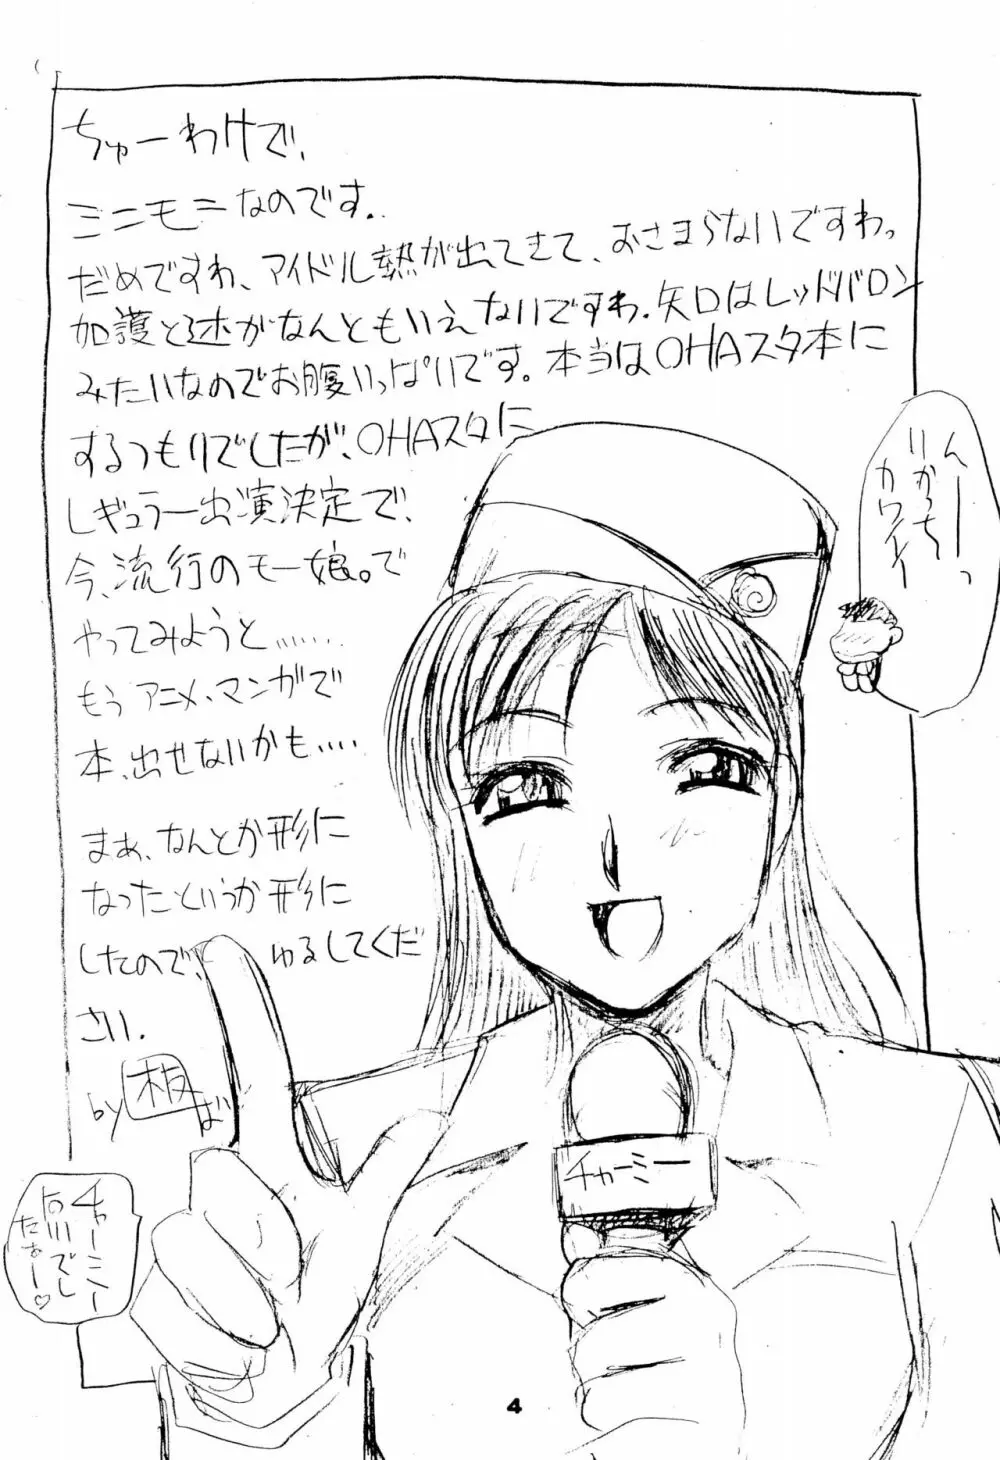 ちゅーわけで、
ミニモニなのです。
だめですわ、アイドル熱が出てきて、おさまらないですわ。
加護と辻がなんともいえないですわ。矢口はレッドバロン
みたいなのでお腹いっぱいです。本当はOHAスタ本に
するつもりでしたが、OHAスタに
レギュラー出演決定で、
今、流行のモー娘。で
やってみようと……
もうアニメ、マンガで
本、出せないかも……
まぁ、なんとか形に
なったというか形に
したので、ゆるしてくだ
さい。
by 板ば
んーーっ
りかっち
カワイイ
チャーミー
チャーミー
石川でし
たぁー♡
4